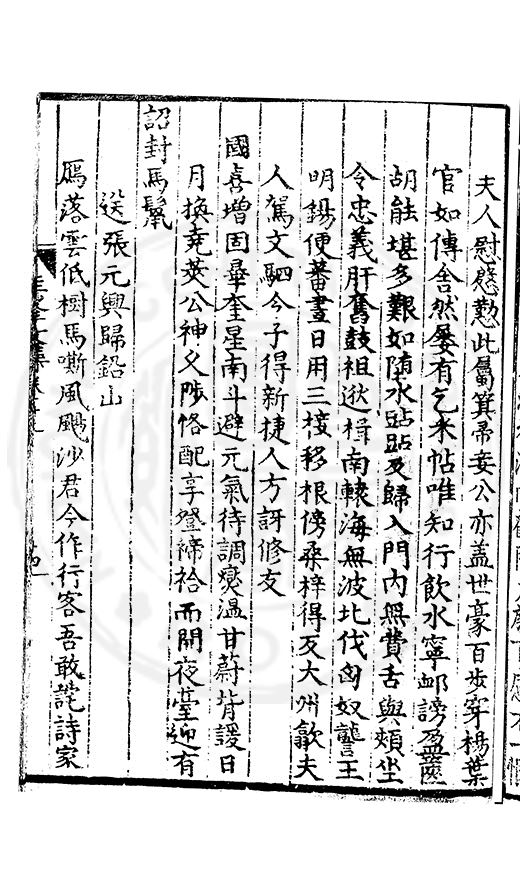 夫人慰慇懃此屬箕帚妾公亦蓋世豪百步穿楊葉
官如傳舍然屡有乞米帖唯知行飲水寧卹謗盈篋
胡能堪多艱如隨水跕跕及歸入門內無費舌與頰坐
令忠義肝奮鼓祖逖楫南轅海無波北伐匈奴讋王
明錫便蕃晝日用三接移根傍桑梓得反大州歙夫
人駕文駟今子得新捷人方訝修支
國喜增固舉奎星南斗避元氣待調爕溫甘蔚背諼日
月換堯蓂公神父陟恪配享登禘祫而開夜臺迎有
詔封馬鬣
送張元興歸鉛山
鴈落雲低樹馬嘶風颺沙君今作行客吾敢詫詩家